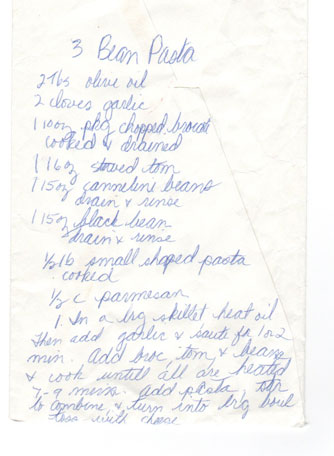 3 Bean Pasta
2 Tbs olive oil
2 cloves garlic
1 10oz pkg chopped brocoli
cooked & drained
1 16oz stewed tom
1 15oz canneline beans
drain & rinse
1 15oz black bean
drain & rinse
1/2 lb small shaped pasta
cooked
1/2 c parmesan
1. In a lrg skillet heat oil
Then add garlic & saute for 1 or 2
min. add broc, tom, & beans
& cook untill all are heated
7-9 mins. add pasta, stir
to combine & turn into lrg boul
toss with cheese